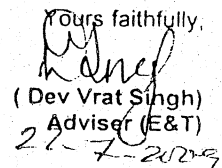 Yours faithfully,
( Dev Vrat Singh)
Adviser (E&T)